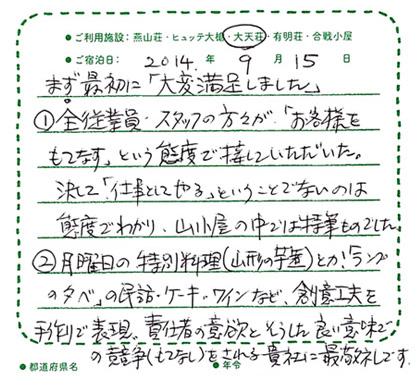 ● ご利用施設：燕山荘・ヒュッテ大槍・大天荘・有明荘・合戦小屋
● ご宿泊日： 2014. 年 9 月 15 日
まず最初に「大変満足しました」
①全従業員・スタッフの方々が、「お客様を
もてなす」という態度で接していただいた。
決して「仕事としてやる」ということでないのは
態度でわかり、山小屋の中では特筆ものでした。
②月曜日の特別料理(山形の芋煮)とか「ランプ
の夕べ」の民話・ケーキ・ワインなど、創意工夫を
手作りで表現。責任者の意欲とそうした良い意味で
の競争(もてなし)をされる貴社に最敬礼です。
● 都道府県名 ● 年令